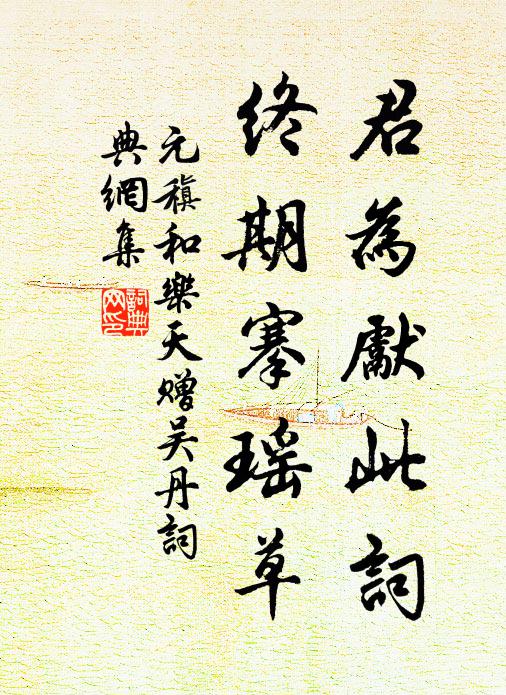 君為獻此詞
終期搴瑤草
元稹和樂天贈吳丹詞
典網集
詞典網印